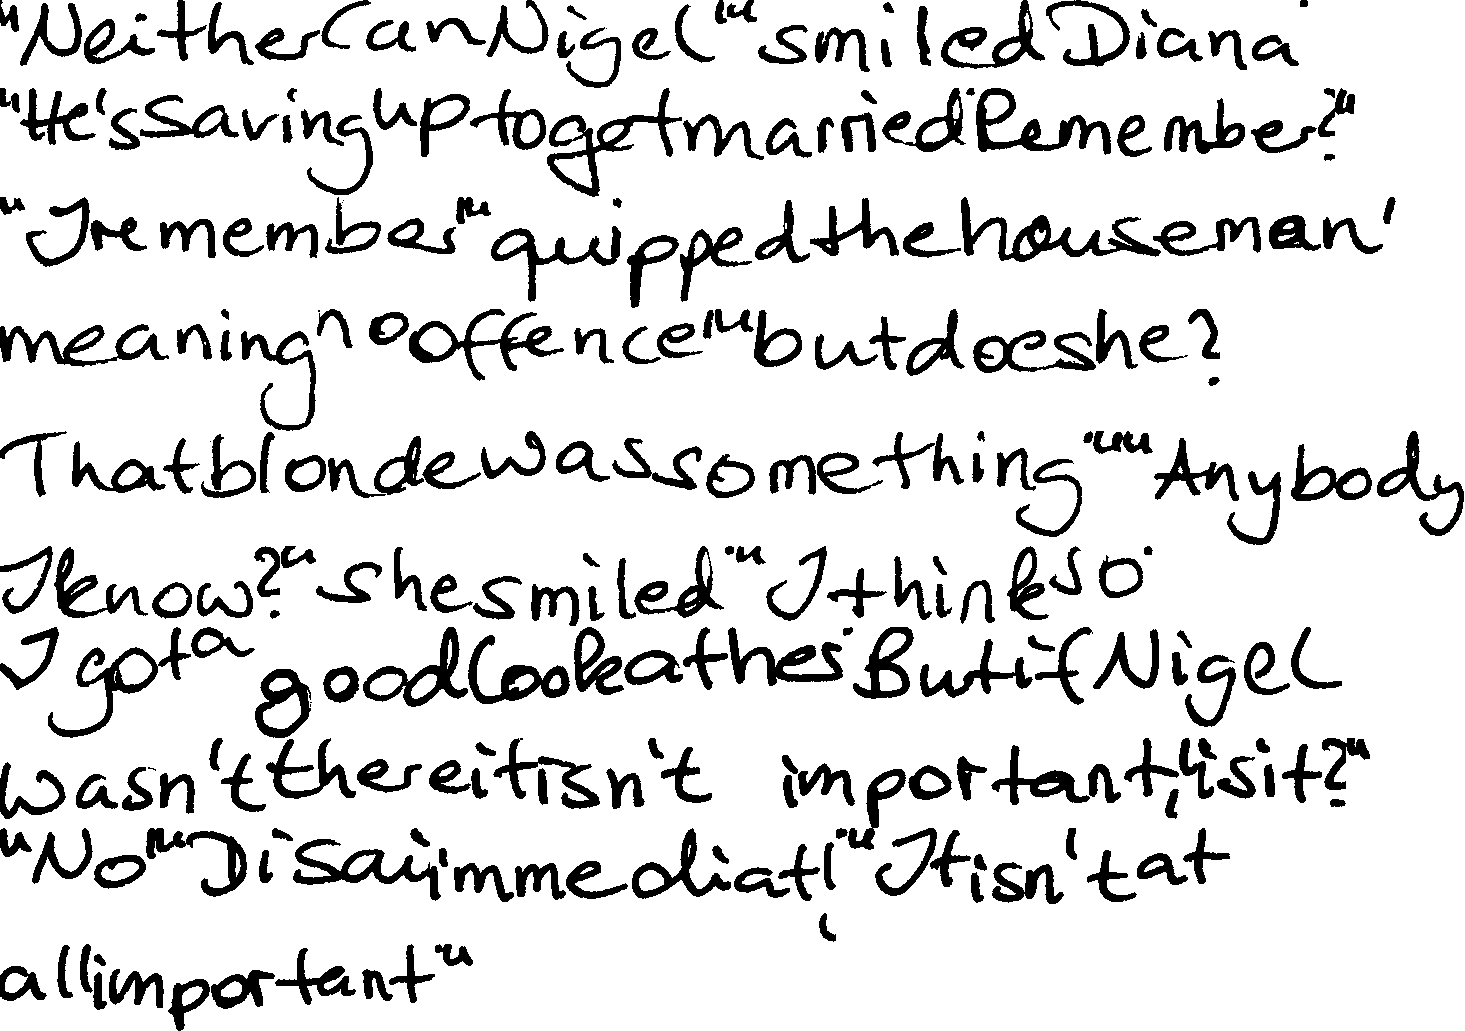 "Neither can Nigel," smiled Diana.
"He's saving up to get married. Remember?"
"I remember," quipped the houseman,
meaning no offence, "but does he?
That blonde was something." "Anybody
I know?" she smiled. "I think so.
I got a good look at her. But if Nigel
wasn't there it isn't important, is it?"
"No," Di said immediately. "It isn't at
all important"